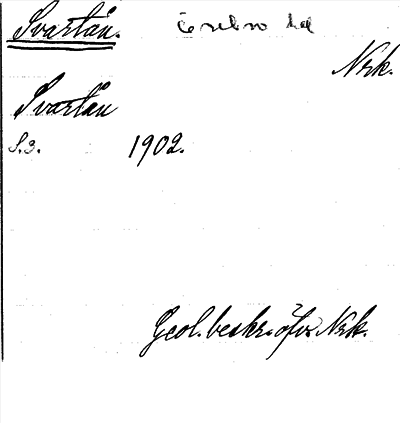 Svartån. Örebro hd
Nrk.
Svartån
S.3. 1902.
Geol. beskr. öfver Nrk.